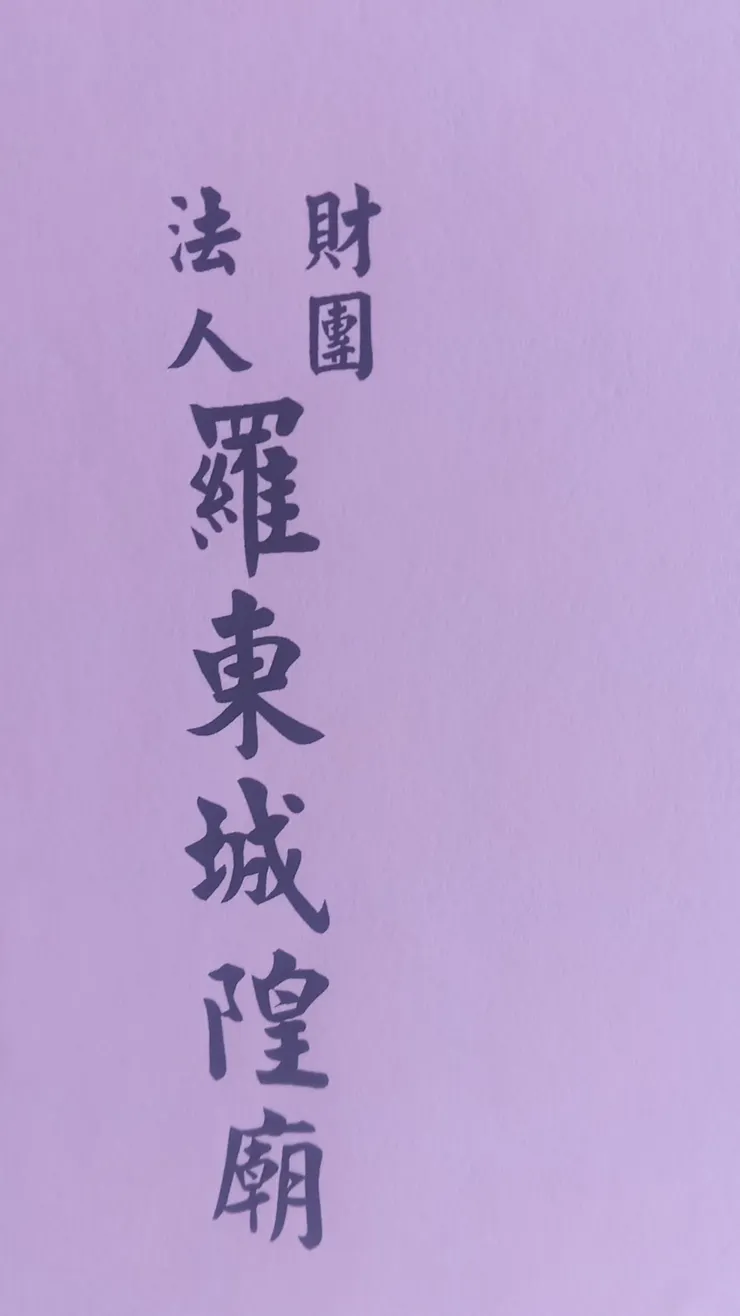 財團
法人
羅東城隍廟